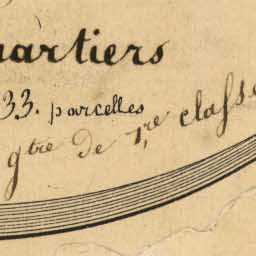 uartiers
33. parcelles
gtre de 1re classe